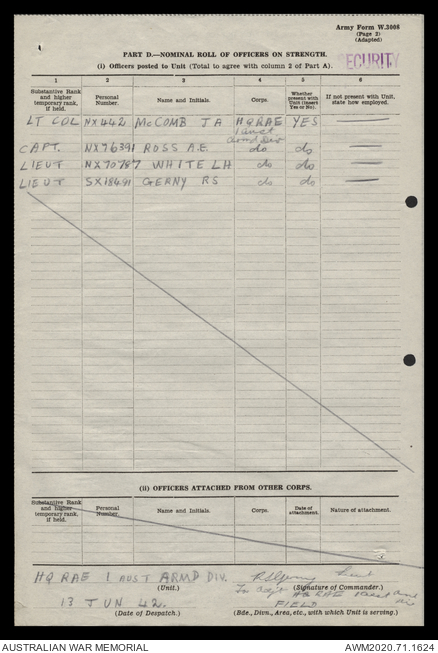 Army Form W.3008
(Page 2)
(Adapted)
SECURITY
PART D.—NOMINAL ROLL OF OFFICERS ON STRENGTH.
(i) Officers posted to Unit (Total to agree with column 2 of Part A).
1 2 3 4 5 6
Substantive Rank and higher temporary rank, if held. Personal Number. Name and Initials. Corps. Whether present with Unit (insert Yes or No). If not present with Unit, state how employed.
LT COL NX442 McCOMB J A HQRAE YES
1 aust
armd Div
CAPT. NX76391 ROSS A.E. do do
LIEUT NX70787 WHITE LH do do
LIEUT SX18491 GEENY RS do do
(ii) OFFICERS ATTACHED FROM OTHER CORPS.
Substantive Rank and higher temporary rank, if held. Personal Number. Name and Initials. Corps. Date of attachment. Nature of attachment.
HQ RAE 1 AUST ARMD DIV. Lieut
(Unit.) (Signature of Commander.)
13 JUN 42. FIELD
(Date of Despatch.) (Bde., Divn., Area, etc., with which Unit is serving.)
AUSTRALIAN WAR MEMORIAL AWM2020.71.1624